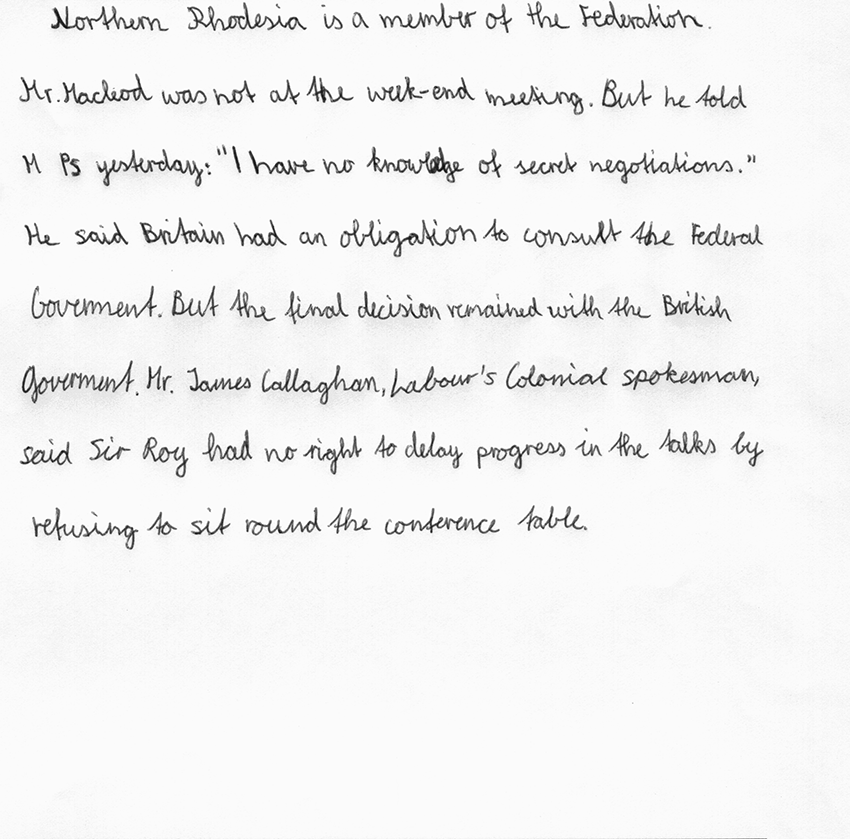 Northern Rhodesia is a member of the Federation.
Mr. Macleod was not at the week-end meeting. But he told
M Ps yesterday: "I have no knowledge of secret negotiations."
He said Britain had an obligation to consult the Federal
Goverment. But the final decision remained with the British
goverment. Mr. James Callaghan, Labour's Colonial spokesman,
said Sir Roy had no right to delay progress in the talks by
refusing to sit round the conference table.